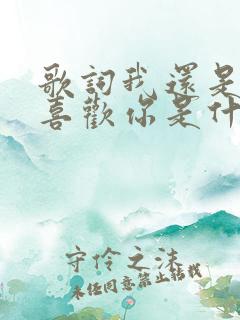 歌詞我還是
喜歡你是什
守伶之沫
未经同意禁止转载